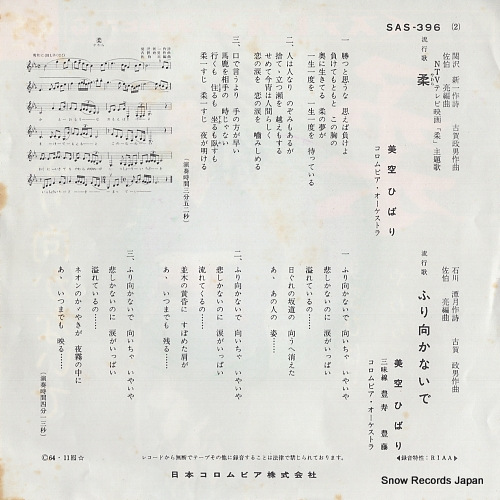 SAS-396 (2)
流行歌
NTVテレビ映画「柔」主題歌
柔
関沢 新一作詩
古賀政男作曲
佐伯 亮編曲
美空ひばり
コロムビア・オーケストラ
一、勝つと思うな 思えば負けよ
負けてもともと この胸の
奥に生きてる 柔の夢が
一生一度を 一生一度を 待っている
二、人は人なり のぞみもあるが
捨てて立つ瀬を 越えもする
せめて今宵は 人間らしく
恋の涙を 恋の涙を 噛みしめる
三、口で言うより 手の方が早い
馬鹿を相手の 時じゃない
行くも 住るも 坐るも臥すも
柔一すじ 柔一すじ 夜が明ける
(演奏時間三分五二秒)
柔
流行歌
ふり向かないで
石川 潭月作詩
古賀 政男作曲
佐伯 亮編曲
美空ひばり
三味線 豊寿 豊藤
コロムビア・オーケストラ
一、ふり向かないで 向いちゃ いやいや
悲しかないのに 涙がいっぱい
溢れているの……
日ぐれの坂道の 向うへ消えた
あゝ あの人の 姿……
二、ふり向かないで 向いちゃ いやいや
悲しかないのに 涙がいっぱい
流れてくるの……
並木の黄昏に すぼめた肩が
あゝ いつまでも 残る……
三、ふり向かないで 向いちゃ いやいや
悲しかないのに 涙がいっぱい
溢れているの……
ネオンのかゞやきが 夜霧の中に
あゝ いつまでも 映る……
(演奏時間四分一三秒)
Ⓒ64・11 ☆
レコードから無断でテープその他に録音することは法律で禁じられております。
◀録音特性：RIAA▶
日本コロムビア株式会社
Snow Records Japan